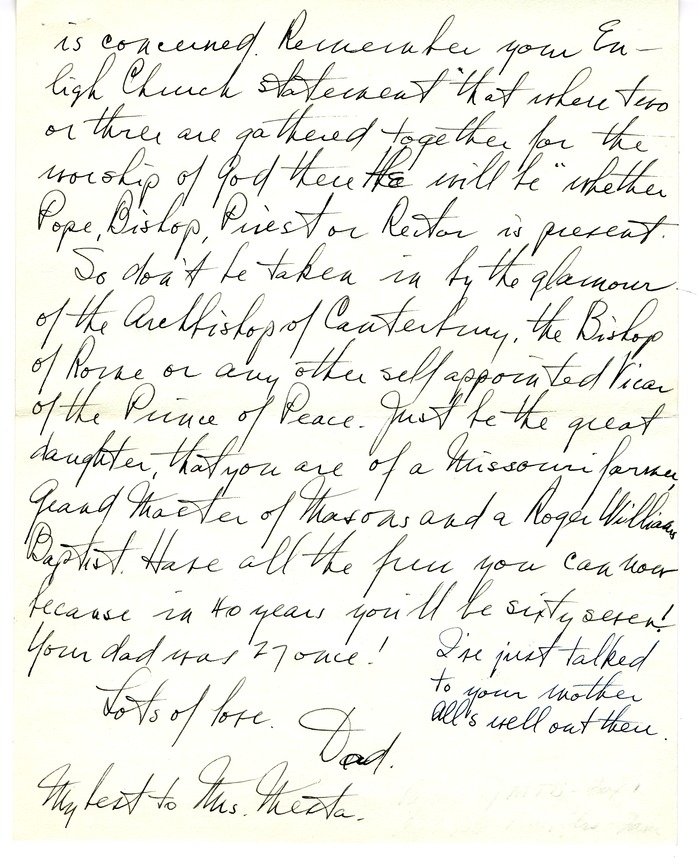 is concerned. Remember your En-
ligh Church statement "that where two
or three are gathered together for the
worship of God there He will be" whether
Pope, Bishop, Priest or Rector is present.
So don't be taken in by the glamour
of the Archbishop of Canterbury, the Bishop
of Rome or any other self appointed Vicar
of the Prince of Peace. Just be the great
daughter, that you are of a Missouri farmer,
Grand Master of Masons and a Roger Williams
Baptist. Have all the fun you can now
because in 40 years you'll be sixty seven!
Your dad was 27 once!
I've just talked
to your mother
All's well out there.
Lots of love.
Dad.
My best to Mrs. Mesta.